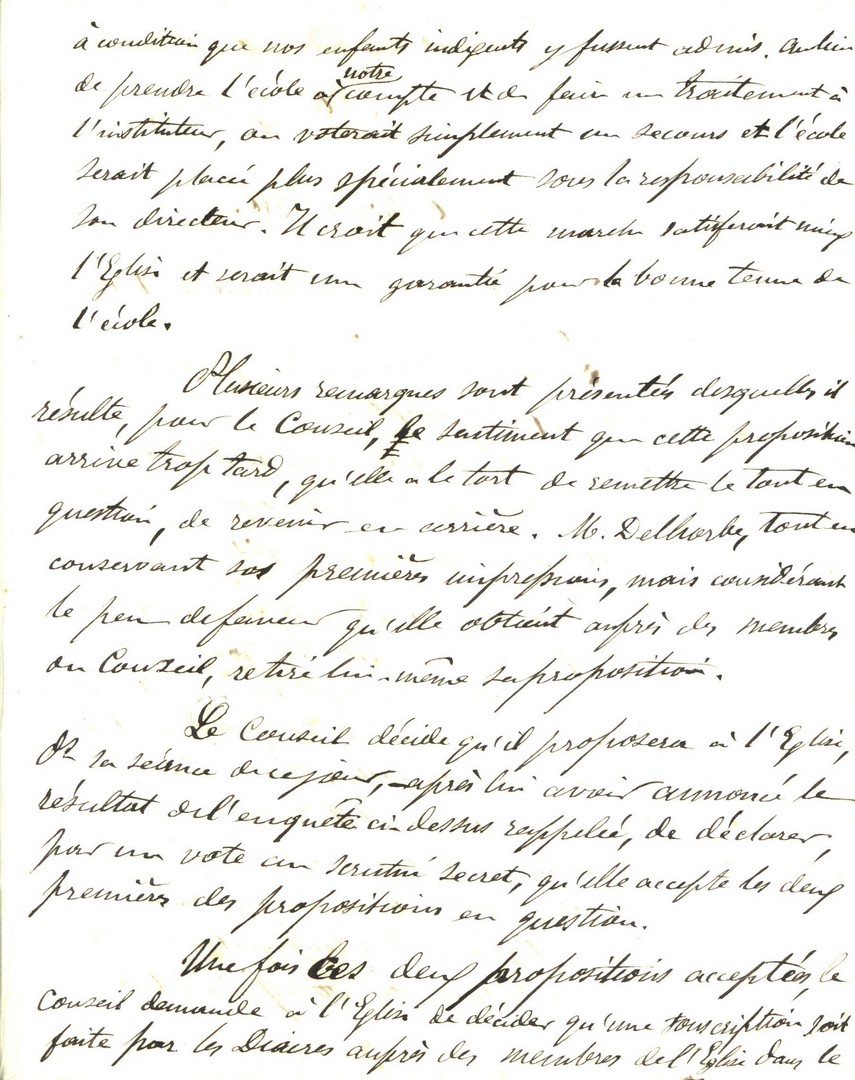 à condition que nos enfants indigents y fussent admis. Au lieu
de prendre l'école à notre compte et de faire un traitement à
l'instituteur, on voterait simplement un secours et l'école
serait placée plus spécialement sous la responsabilité de
son directeur. Il croit que cette marche satisferait mieux
l'Eglise et serait une garantie pour la bonne tenue de
l'école.
Plusieurs remarques sont présentées desquelles il
résulte, pour le Conseil, le sentiment que cette proposition
arrive trop tard, qu'elle a le tort de remettre le tout en
question, de revenir en arrière. M. Delhorbe, tout en
conservant ses premières impressions, mais considérant
le peu de faveur qu'elle obtient auprès des membres
du Conseil, retire lui-même sa proposition.
Le Conseil décide qu'il proposera à l'Eglise,
sa séance de ce jour, après lui avoir annoncé le
résultat de l'enquête ci-dessus rappelée, de déclarer,
par un vote au scrutin secret, qu'elle accepte les deux
premières des propositions en question.
Une fois ces deux propositions acceptées, le
Conseil demande à l'Eglise de décider qu'une souscription soit
faite par les Diacres auprès des membres de l'Eglise dans le